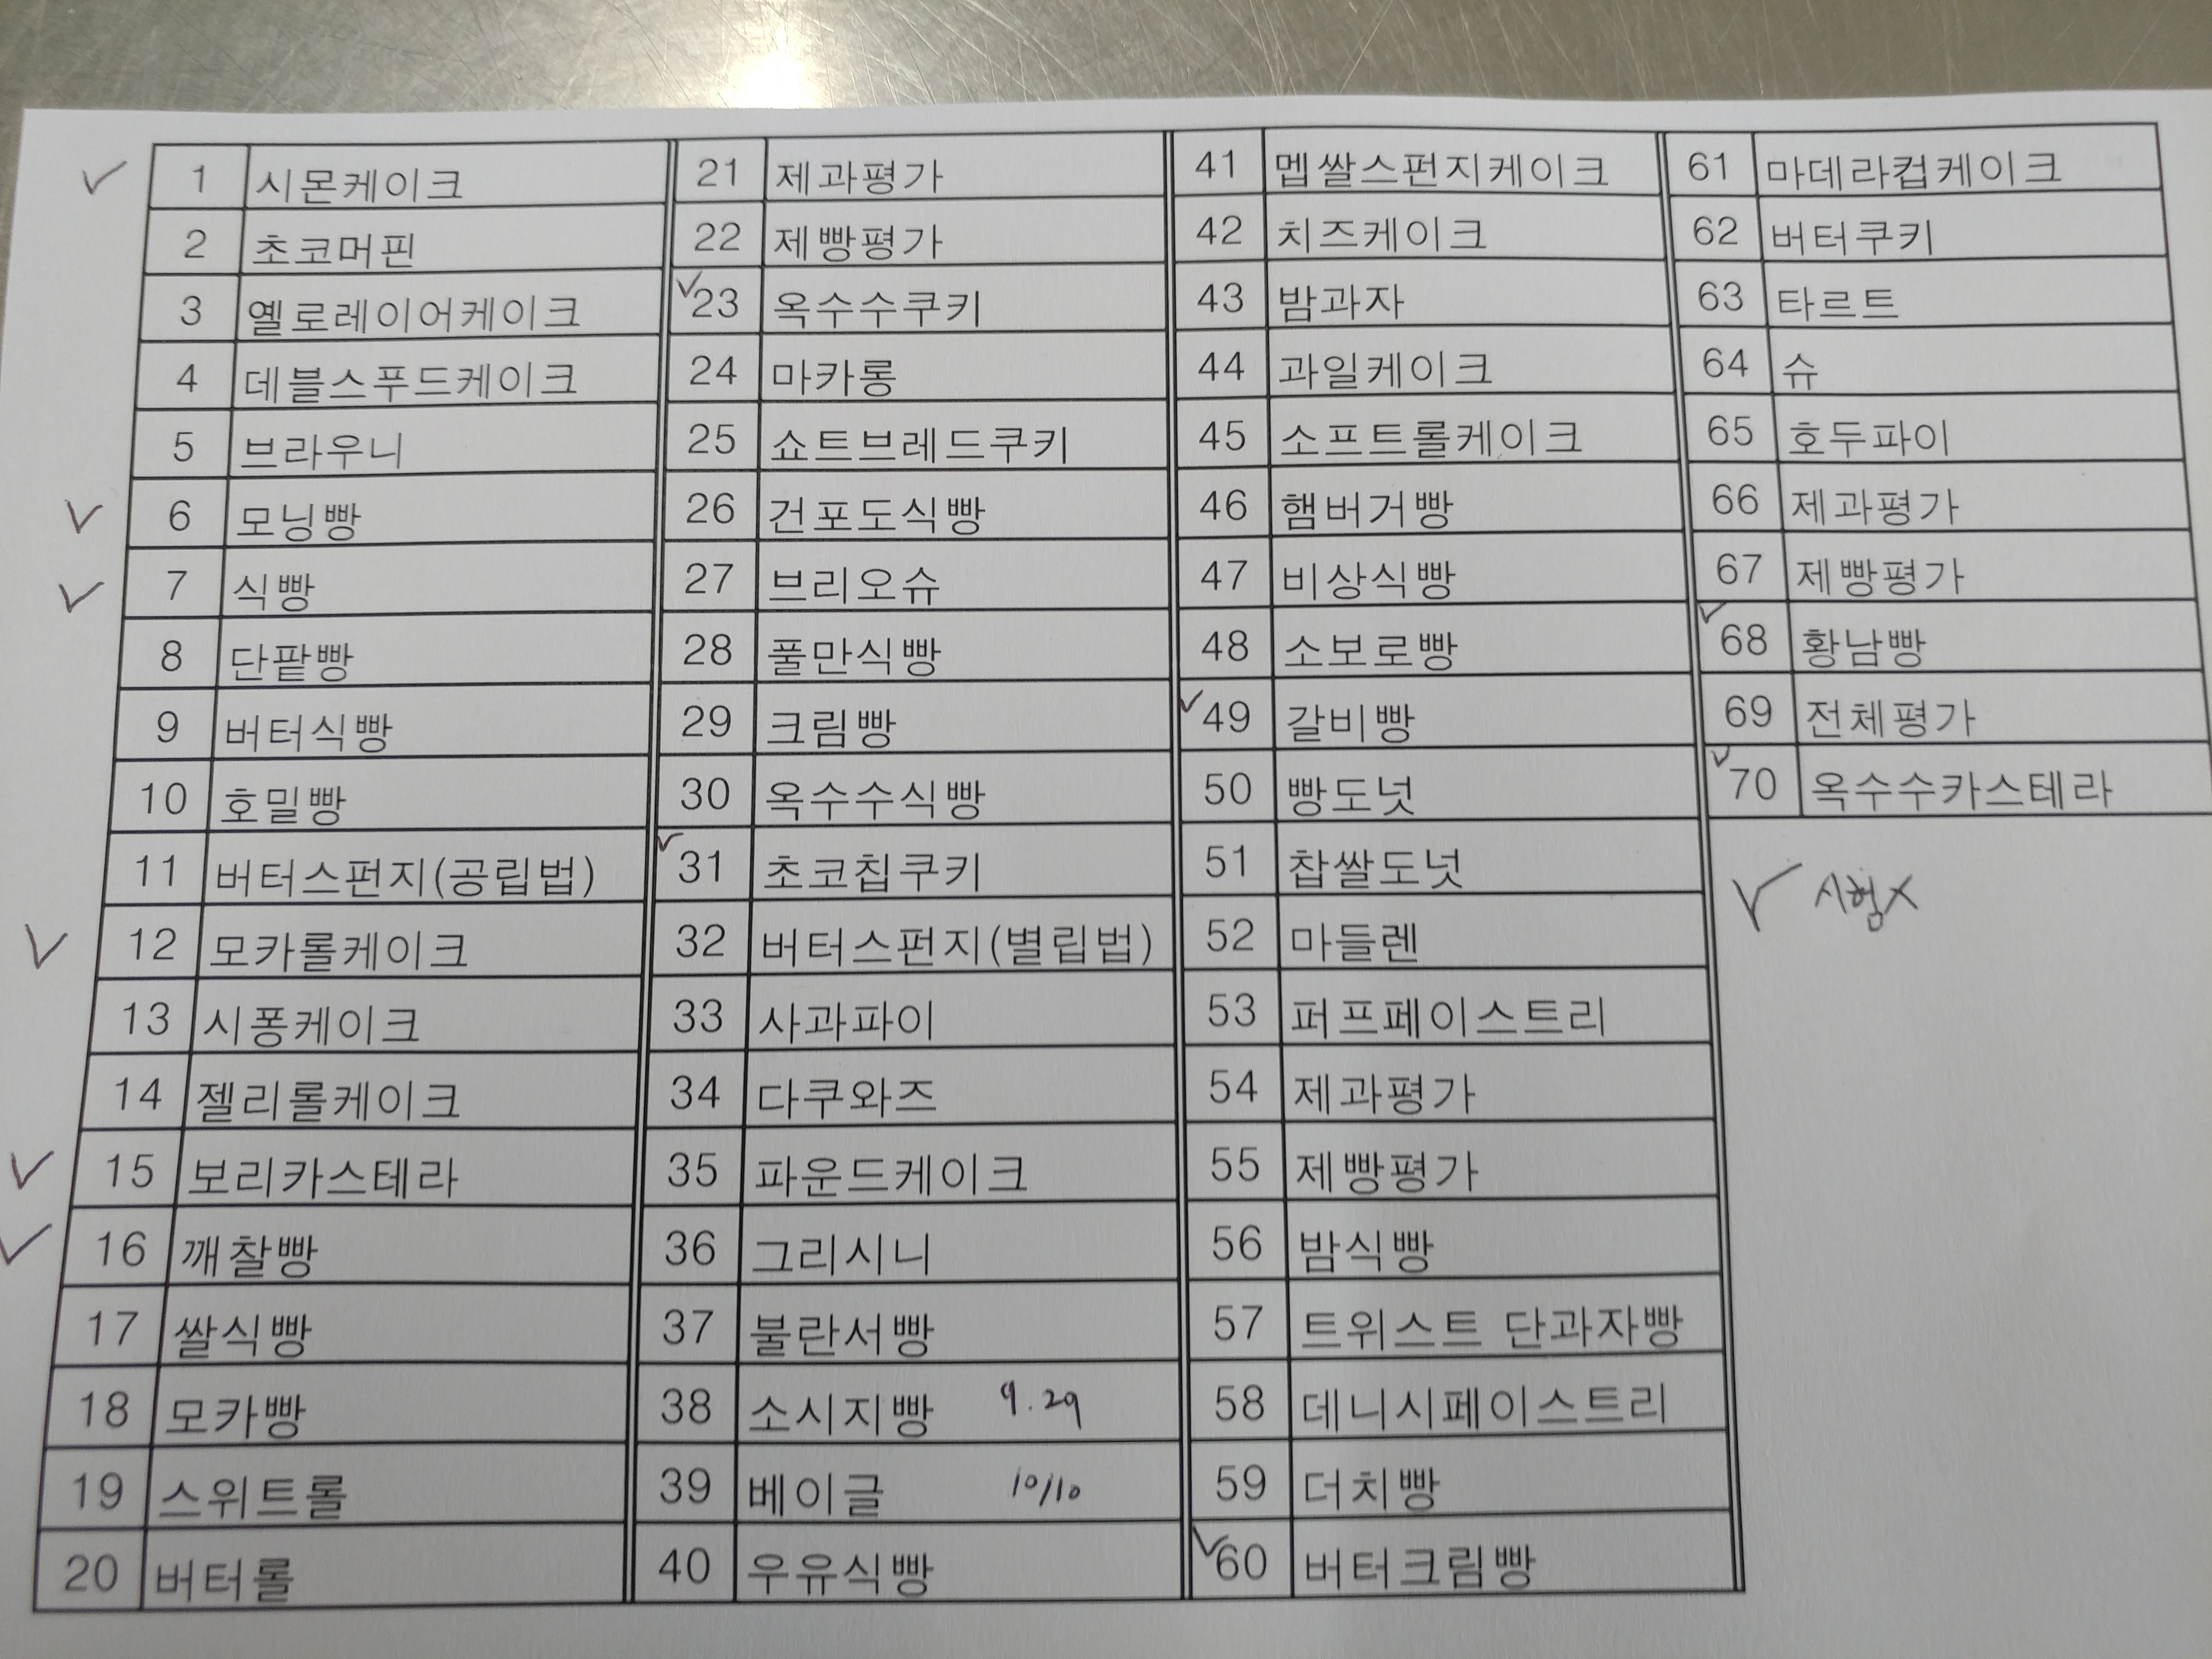 ✓ 1 시몬케이크
2 초코머핀
3 옐로레이어케이크
4 데블스푸드케이크
5 브라우니
✓ 6 모닝빵
✓ 7 식빵
8 단팥빵
9 버터식빵
10 호밀빵
11 버터스펀지(공립법)
✓ 12 모카롤케이크
13 시퐁케이크
14 젤리롤케이크
✓ 15 보리카스테라
✓ 16 깨찰빵
17 쌀식빵
18 모카빵
19 스위트롤
20 버터롤
21 제과평가
22 제빵평가
✓ 23 옥수수쿠키
24 마카롱
25 쇼트브레드쿠키
26 건포도식빵
27 브리오슈
28 풀만식빵
29 크림빵
30 옥수수식빵
✓ 31 초코칩쿠키
32 버터스펀지(별립법)
33 사과파이
34 다쿠와즈
35 파운드케이크
36 그리시니
37 불란서빵
38 소시지빵 9.29
39 베이글 10/10
40 우유식빵
41 멥쌀스펀지케이크
42 치즈케이크
43 밤과자
44 과일케이크
45 소프트롤케이크
46 햄버거빵
47 비상식빵
48 소보로빵
✓ 49 갈비빵
50 빵도넛
51 찹쌀도넛
52 마들렌
53 퍼프페이스트리
54 제과평가
55 제빵평가
56 밤식빵
57 트위스트 단과자빵
58 데니시페이스트리
59 더치빵
✓ 60 버터크림빵
61 마데라컵케이크
62 버터쿠키
63 타르트
64 슈
65 호두파이
66 제과평가
67 제빵평가
✓ 68 황남빵
69 전체평가
✓ 70 옥수수카스테라
✓ 시험X